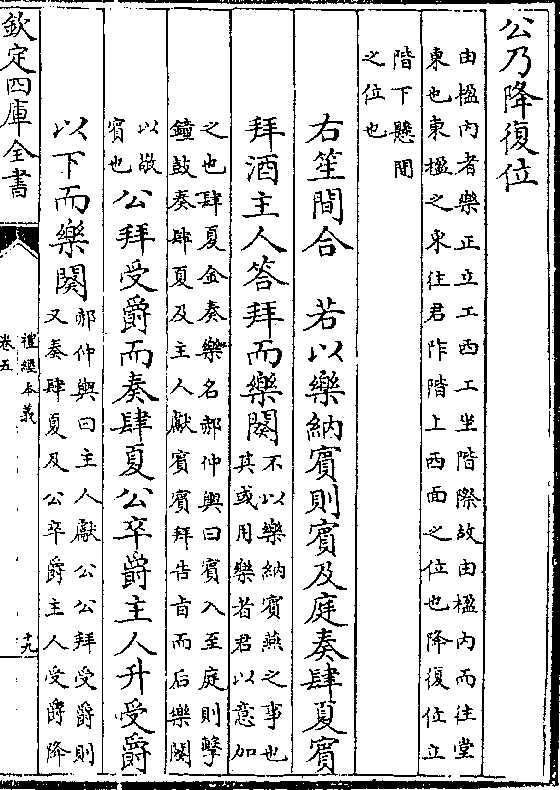 公乃降復位
由楹内者樂正立工西工坐階際故由楹内而往堂
東也東楹之東往君阼階上西面之位也降復位立
階下懸間
之位也
右笙間合　若以樂納賓則賓及庭奏肆夏賓
拜酒主人答拜而樂闋
不以樂納賓燕之事也
其或用樂者君以意加
之也肆夏金奏樂名郝仲輿曰賓入至庭則擊
鐘鼓奏肆夏及主人獻賓賓拜告旨而后樂闋
以敬
賓也
公拜受爵而奏肆夏公卒爵主人升受爵
以下而樂闋
郝仲輿曰主人獻公公拜受爵則
又奏肆夏及公卒爵主人受爵降
欽定四庫全書
禮經本義
卷五
十九